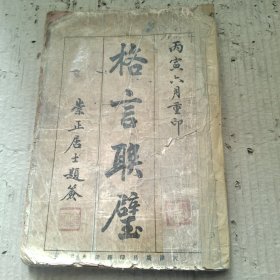 丙寅六月重印
格言聯璧
崇正居士題簽